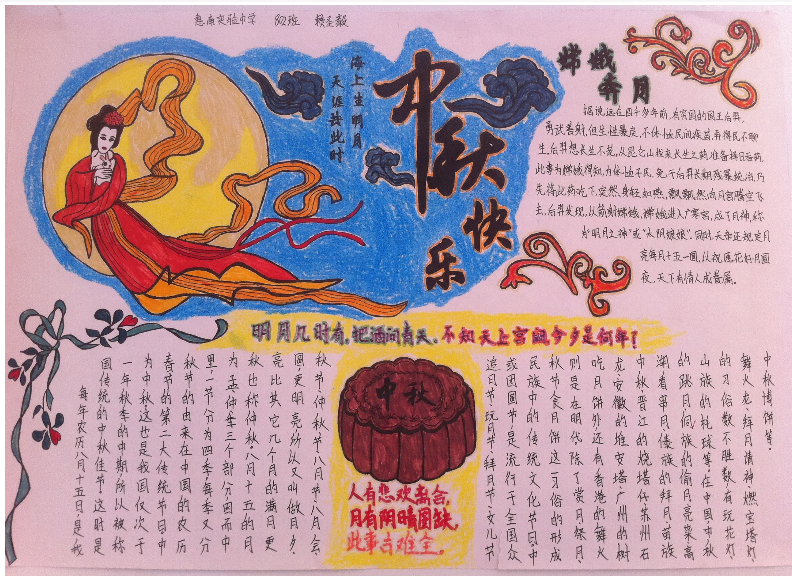 惠南实验中学 802班
海上生明月
天涯共此时
中秋
快乐
嫦娥
奔月
据说远在四千多年前,有穷国的国王后羿,
勇武善射,但生性暴戾,不体恤民间疾苦,弄得民不聊
生,后羿想长生不老,从昆仑山找来长生之药,准备择日吞药,
此事为嫦娥得知,为体恤子民,免于后羿长期残暴统治,乃
先将此药吃下,突然,身轻如燕,飘飘然,向月宫腾空飞
去,后羿发现,从箭射嫦娥,嫦娥进入广寒宫,成了月神,称
为"明月之神"或"太阴娘娘",同时天帝还规定月
亮每月十五一圆,从祝愿花好月圆
夜,天下有情人成眷属。
明月几时有,把酒问青天。不知天上宫阙今夕是何年!
每年农历八月十五日,是我
国传统的中秋佳节这时是
一年秋季的中期所以被称
为中秋这也是我国仅次于
春节的第二大传统节日中
秋节的由来在中国的农历
里一节分为四季每季又分
为孟仲季三个部分因而中
秋也称仲秋八月十五的月
亮比其它几个月的满月更
圆更明亮所以又叫做月夕,
秋节仲秋节八月节八月会
中秋
人有悲欢离合,
月有阴晴圆缺,
此事古难全。
追月节、玩月节、拜月节、女儿节
或团圆节,是流行于全国众
民族中的传统文化节日,中
秋节食月饼这一习俗的形成
则是在明代除了赏月祭月、
吃月饼外还有香港的舞火
龙安徽的堆宝塔广州的树
中秋晋江的烧塔仔苏州石
湖看串月傣族的拜月苗族
的跳月侗族的偷月亮菜高
山族的托球等,在中国中秋
的习俗数不胜数有玩花灯,
舞火龙,拜月请神,燃宝塔灯,
中秋博饼等.